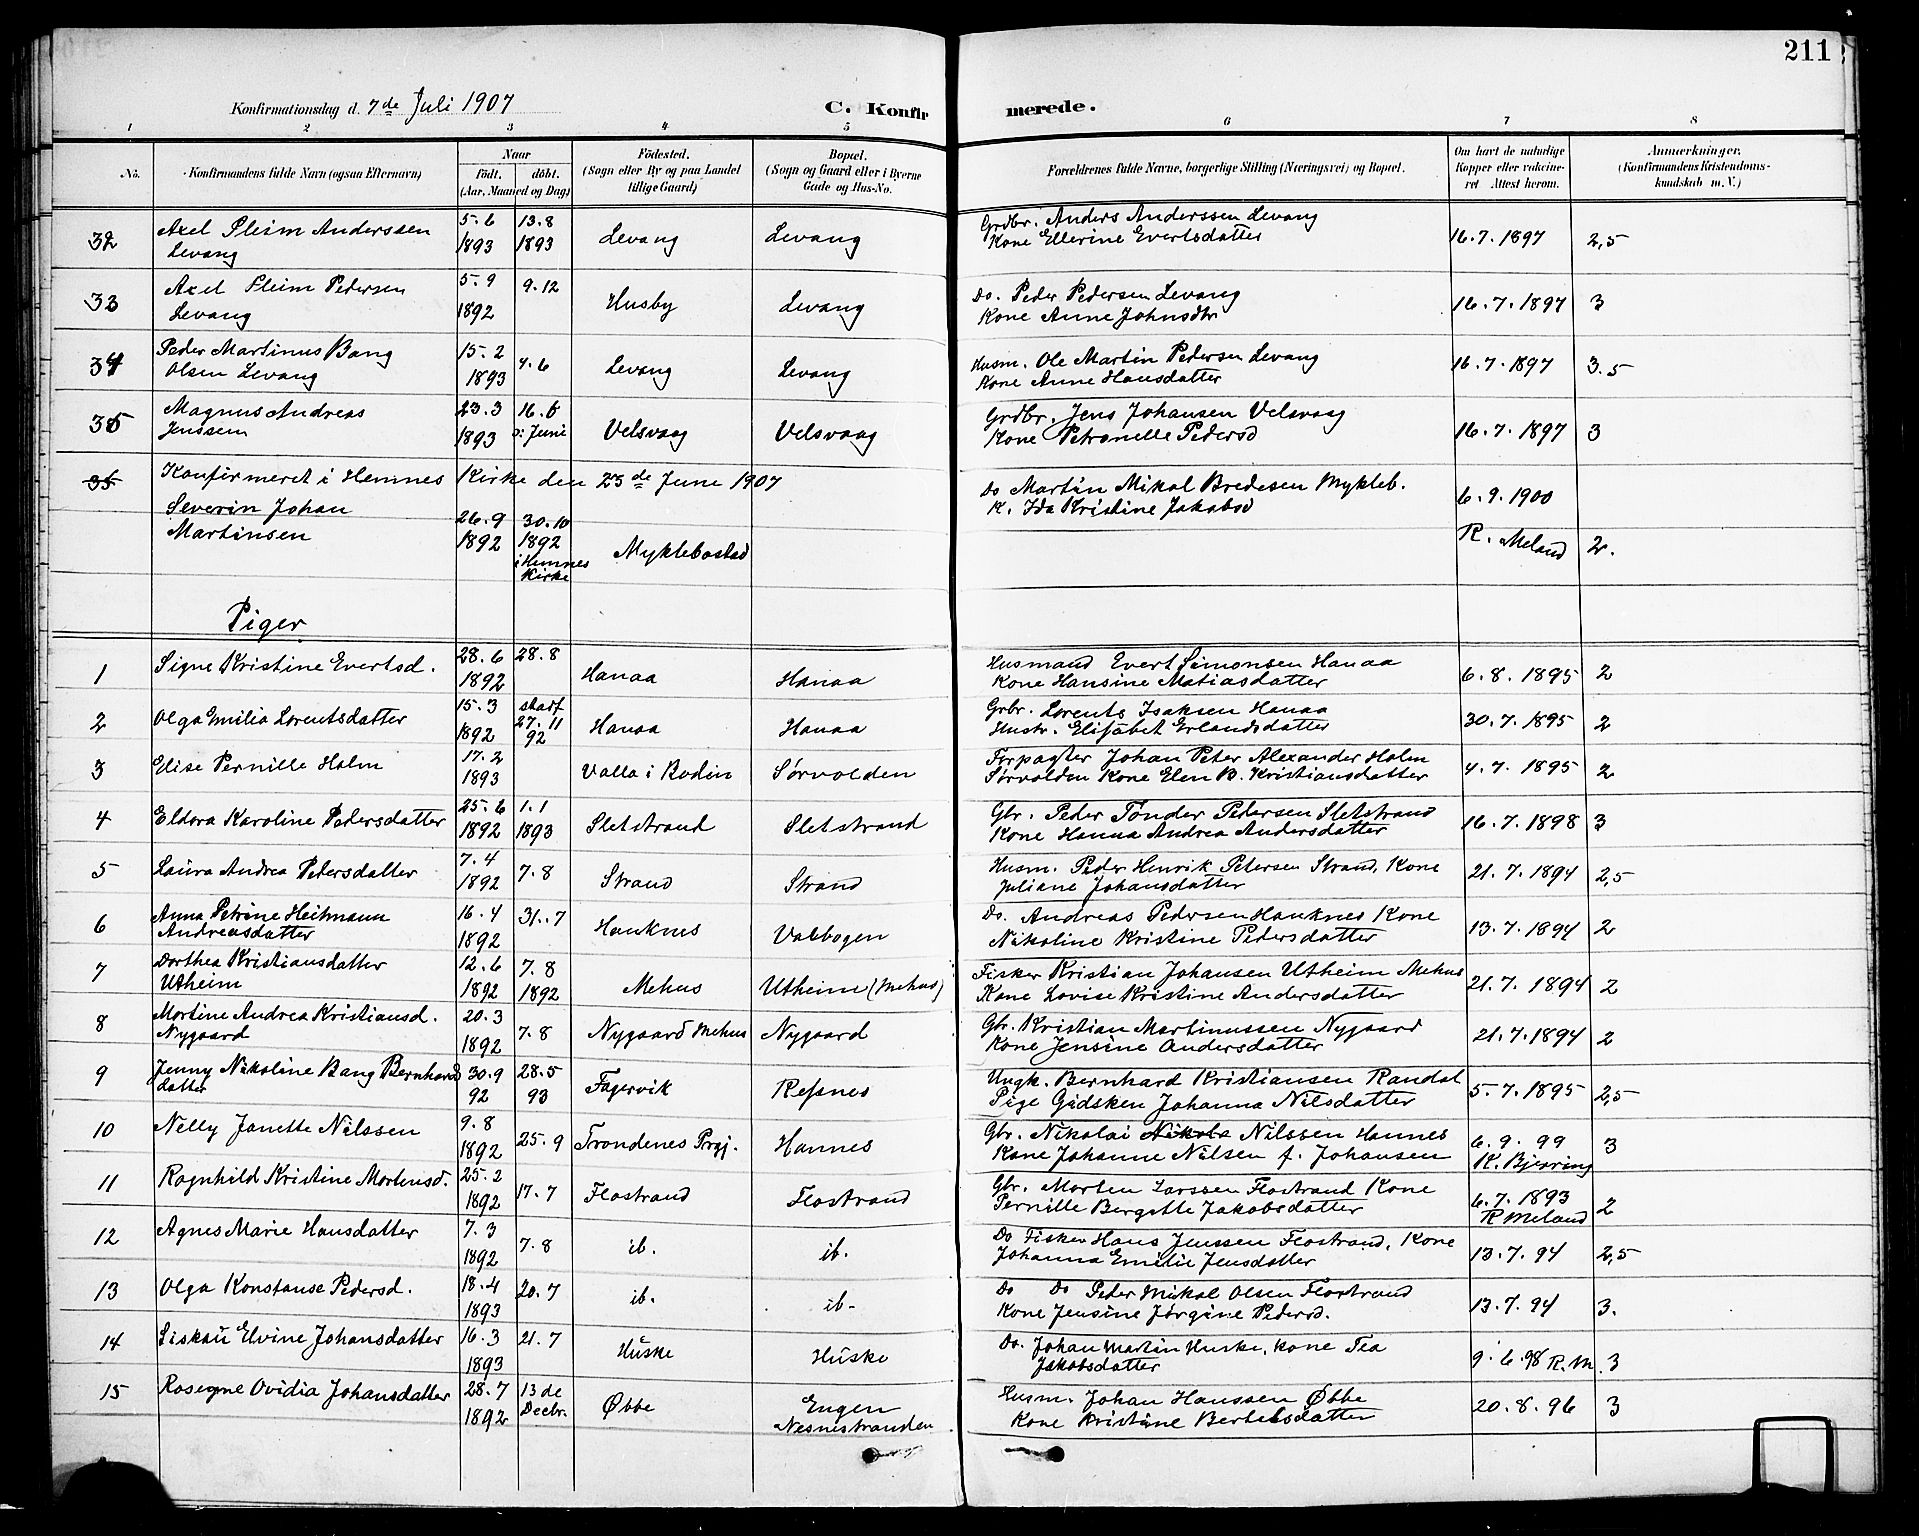 211
Konfirmationsdag d. 7de Juli 1907 C. Konfir merede.
1 2 3 4 5 6 7 8
No. Konfirmandens fulde Navn (ogsaa Efternavn) Naar Födt. döbt. (Aar, Maaned og Dag) Födested. (Sogn eller By og paa Landet tillige Gaard) Bopæl. (Sogn og Gaard eller i Byerne Gade og Hus-No. Forældrenes fulde Navne, borgerlige Stilling (Næringsvei) og Bopæl. Om havt de naturlige Kopper eller vakcineret Attest herom. Anmærkninger. (Konfirmandens Kristendomskundskab m. V.)
32 Axel Pleim Anderssen 5.6 13.8 Levang Levang Grdbr. Anders Anderssen Levang 16.7.1897 2,5
Levang 1893 1893 Kone Ellerine Evertsdatter
33 Axel Pleim Pedersen 5.9 9.12 Husby Levang Do. Peder Pedersen Levang 16.7.1897 3
Levang 1892 Kone Anne Johnsdtr
34 Peder Martinus Bang 15.2 4.6 Levang Levang Husm. Ole Martin Pedersen Levang 16.7.1897 3.5
Olsen Levang 1893 Kone Anne Hansdatter
35 Magnus Andreas 23.3 16.6 Velsvaag Velsvaag Grdbr. Jens Johansen Velsvaag 16.7.1897 3
Jenssen 1893 ɔ: Juni Kone Petronelle Pedersd
35 Konfirmeret i Hemnes Kirke den 23de June 1907 Do Martin Mikal Bredesen Mykleb. 6.9.1900
Severin Johan 26.9 30.10 K. Ida Kristine Jakobsd
Martinsen 1892 1892 Myklebostad R. Meland 2.
i Hemnes
Kirke
Piger
1 Signe Kristine Evertsd. 28.6 28.8 Hanaa Hanaa Husmand Evert Simonsen Hanaa 6.8.1895 2
1892 Kone Hansine Matiasdatter
2 Olga Emilia Lorentsdatter 15.3 27.11 Hanaa Hanaa Grbr. Lorents Isaksen Hanaa 30.7.1895 2
1892 92 Hustr. Elisabet Erlandsdatter
3 Elise Pernille Holm 17.2 Valla i Bodin Sørvolden Forpagter Johan Peter Alexander Holm 4.7.1895 2
1893 Sørvolden Kone Elen B. Kristiansdatter
4 Eldora Karoline Pedersdatter 25.6 1.1 Sletstrand Sletstrand Gbr. Peder Tönder Pedersen Sletstrand 16.7.1898 3
1892 1893 Kone Hanna Andrea Andersdatter
5 Laura Andrea Pedersdatter 7.4 7.8 Strand Strand Husm. Peder Henrik Petersen Strand, Kone 21.7.1894 2,5
1892 Juliane Johansdatter
6 Anna Petrine Heitmann 16.4 31.7 Hauknes Valbogen Do. Andreas Pedersen Hauknes Kone 13.7.1894 2
Andreasdatter 1892 Nikoline Kristine Pedersdatter
7 Dorthea Kristiansdatter 12.6 7.8 Mehus Utheim (Mehus) Fisker Kristian Johansen Utheim Mehus 21.7.1894 2
Utheim 1892 1892 Kone Lovise Kristine Andersdatter
8 Martine Andrea Kristiansd. 20.3 7.8 Nygaard Mehus Nygaard Gbr. Kristian Martinussen Nygaard 21.7.1894 2
Nygaard 1892 Kone Jensine Andersdatter
9 Jenny Nikoline Bang Bernhards 30.9 28.5 Fagervik Resnes Ungk. Bernhard Kristiansen Randal 5.7.1895 2,5
datter 92 93 Pige Gidsken Johanna Nilsdatter
10 Nelly Janette Nilssen 9.8 25.9 Trondenes Prgj. Hannes Gbr. Nikolai Nikola Nilssen Hannes 6.9.99 3
1892 Kone Johanne Nilsen f. Johansen K. Bjerring
11 Ragnhild Kristine Mortensd. 25.2 17.7 Flostrand Flostrand Gbr. Morten Larssen Flostrand Kone 6.7.1893 2
1892 Pernille Bergitte Jakobsdatter R Meland
12 Agnes Marie Hansdatter 7.3 7.8 ib. ib. Do Fisker Hans Jenssen Flostrand, Kone 13.7.94 2,5
1892 Johanna Emilie Jensdatter
13 Olga Konstanse Pedersd. 18.4 20.7 ib. ib- Do Do Peder Mikal Olsen Flostrand 13.7.94 3.
1893 Kone Jensine Jørgine Pedersd.
14 Liskau Elvine Johansdatter 16.3 21.7 Huske Huske Do. Johan Martin Huske, kone Tea 9.6.98 R.M. 3
1893 Jakobsdatter
15 Rosegne Ovidia Johansdatter 28.7 13 de Øbbe Engen Husm. Johan Hanssen Øbbe 20.8.96 3
1892 Decbr. Nesnestranden Kone Kristine Bertelsdatter